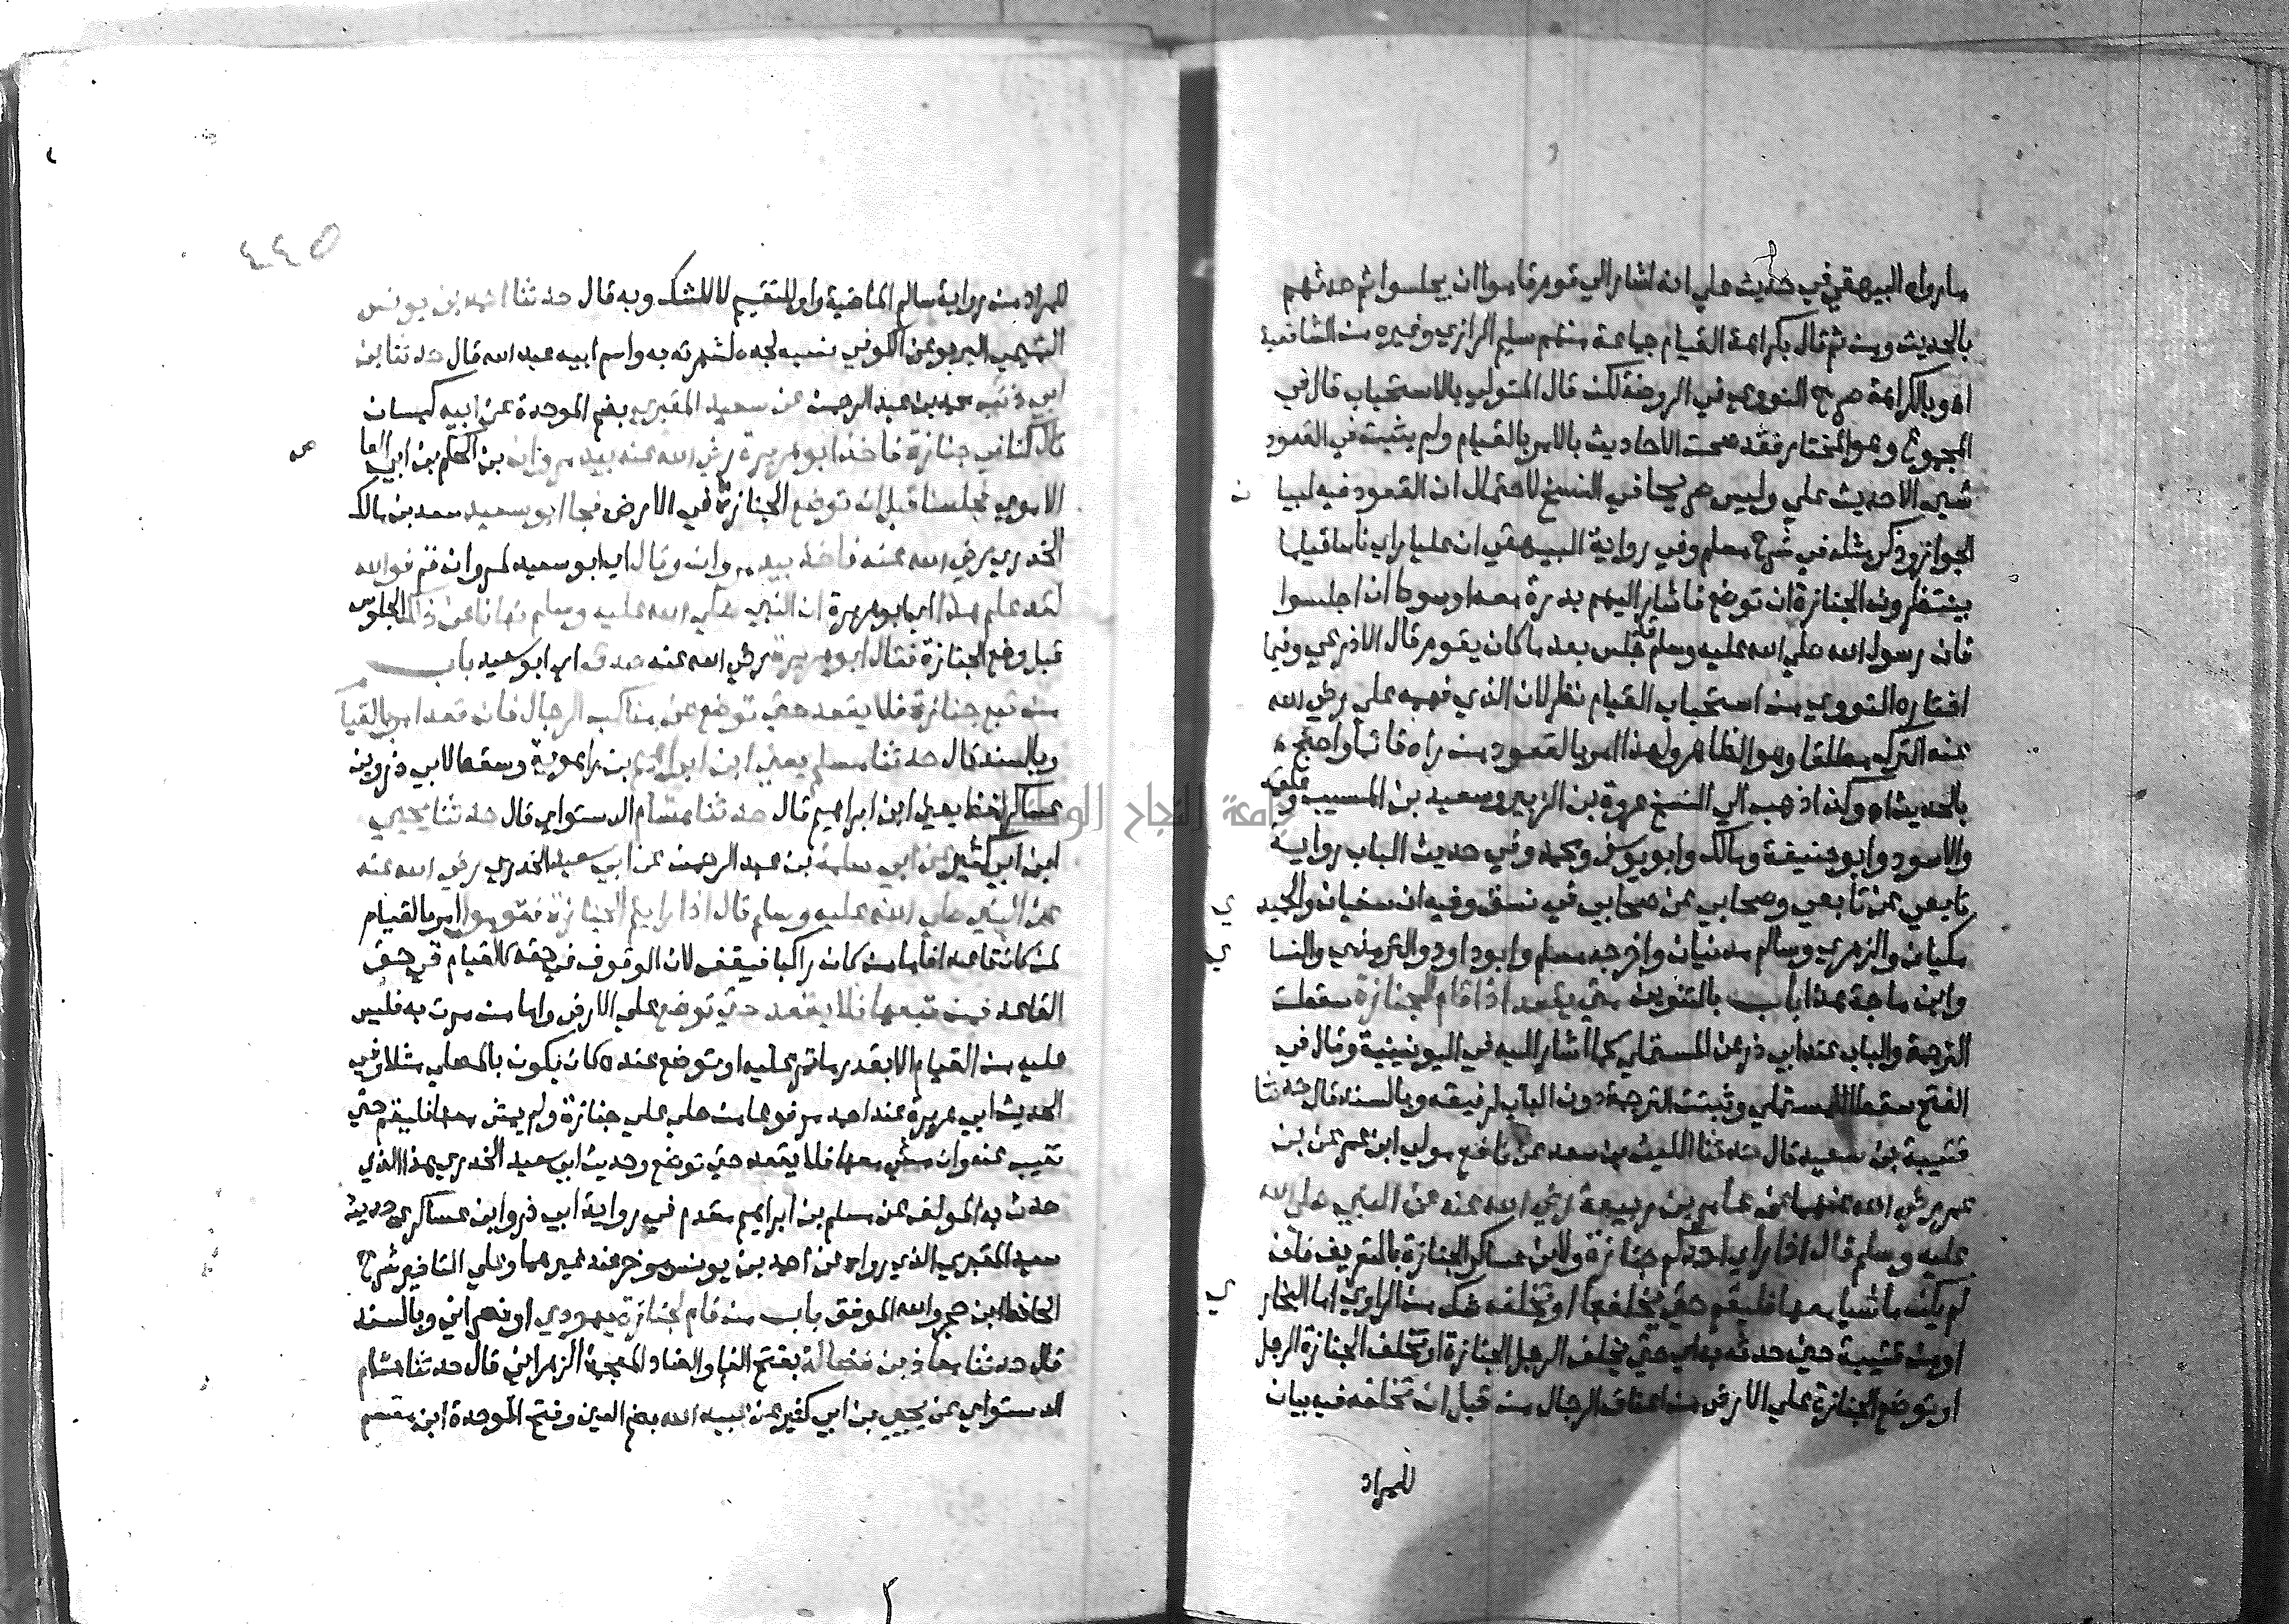 ما رواه البيهقي في حديث علي انه اشار الي قوم قاموا ان يجلسوا ثم حدثهم
بالحديث ومن ثم قال بكراهة القيام جماعة منهم سليم الرازي وغيره من الشافعية
اه وبالكراهة صرح النووي في الروضة لكن قال المتولي بالاستحباب قال في
المجموع وهو المختار فقد صحت الاحاديث بالامر بالقيام ولم يثبت في القعود
شيي الا حديث علي وليس صريحا في النسخ لاحتمال ان القعود فيه لبيا ن
الجواز وذكر مثله في شرح مسلم وفي رواية البيهقي ان عليا راي ناسا قياما
ينتظرون الجنازة ان توضع فاشار اليهم بدرة معه او سوط ان اجلسوا
فان رسول الله صلي الله عليه وسلم قد جلس بعد ما كان يقوم قال الاذرعي وفيما
اختاره النووي من استحباب القيام نظر لان الذي فهمه علي رضي الله
عنه الترك مطلقا وهو الظاهر ولهذا امر بالقعود من راه قائما واحتج
بالحديث اه وكذا ذهب الي النسخ عروة بن الزبير وسعيد بن المسيب وعلقمة
والاسود وابو حنيفة ومالك وابو يوسف ومحمد وفي حديث الباب رواية
تابعي عن تابعي وصحابي عن صحابي في نسق وفيه ان سفيان والحميد ي
مكيان والزهري وسالم مدنيان واخرجه مسلم وابو داود والترمذي والنسا ي
وابن ماجة هذا باب بالتنوين متي يقعد اذا قام للجنازة سقطت
الترجمة والباب عند ابي ذر عن المستملي كما اشار اليه في اليونينية وقال في
الفتح سقط للمستملي وثبتت الترجمة دون الباب لرفيقه وبالسند قال حدثنا
قتيبة بن سعيد قال حدثنا الليث بن سعد عن نافع مولي ابن عمر عن بن
عمر رضي الله عنهما عن عامر بن ربيعة رضي الله عنه عن النبي صلي الله
عليه وسلم قال اذا راي احدكم جنازة ولابن عساكر الجنازة بالتعريف فان
لم يكن ماشيا معها فليقم حتي يخلفها او تخلفه شك من الراوي اما البخار ي
او من قتيبة حين حدثه به اي حتي يخلف الرجل الجنازة او تخلف الجنازة الرجل
او توضع الجنازة علي الارض من اعناق الرجال من قبل ان تخلفه فيه بيان
للمراد
٤٤٥
للمراد من رواية سالم الماضية واو للتقسيم لا للشك وبه قال حدثنا احمد بن يونس
التميمي اليربوعي الكوفي نسبه لجده لشهرته به واسم ابيه عبد الله قال حدثنا بن
ابي ذئب محمد بن عبد الرحمن عن سعيد المقبري بضم الموحدة عن ابيه كيسان
قال كنا في جنازة فاخذ ابو هريرة رضي الله عنه بيد مروان بن الحكم بن ابي العا ص
الاموي فجلسنا قبل ان توضع الجنازة في الارض فجا ابو سعيد سعد بن مالك
الخدري رضي الله عنه فاخذ بيد مروان وقال اي ابو سعيد لمروان قم فوالله
لقد علم هذا اي ابو هريرة ان النبي صلي الله عليه وسلم نهانا عن ذلك الجلوس
قبل وضع الجنازة فقال ابو هريرة رضي الله عنه صدق اي ابو سعيد باب
من تبع جنازة فلا يقعد حتي توضع عن مناكب الرجال فان قعد امر بالقيا
وبالسند قال حدثنا مسلم يعني ابن ابراهيم بن راهوية وسقط لابي ذر وبن
عساكر لفظ يعني ابن ابراهيم قال حدثنا هشام الدستواي قال حدثنا يحيي
ابن ابي كثير عن ابي سلمة بن عبد الرحمن عن ابي سعيد الخدري رضي الله عنه
عن النبي صلي الله عليه وسلم قال اذا رايتم الجنازة فقوموا امر بالقيام
لمن كان قاعدا فاما من كان راكبا فيقف لان الوقوف في حقه كالقيام في حق
القاعد فمن تبعها فلا يقعد حتي توضع علي الارض واما من مرت به فليس
عليه من القيام الا بقدر ما تمر عليه او توضع عنده كان يكون بالمصلي مثلا وفي
الحديث ابي هريرة عند احمد مرفوعا من صلي علي جنازة ولم يمش معها فليقم حتي
تغيب عنه وان مشي معها فلا يقعد حتي توضع وحديث ابي سعيد الخدري هذا الذي
حدث به المولف عن مسلم بن ابراهيم مقدم في رواية ابي ذر وابن عساكر علي حديث
سعيد المقبري الذي رواه عن احمد بن يونس موخر عند غيرهما وعلي الثاني شرح
الحافظ ابن حجر والله الموفق باب من قام لجنازة يهودي او نصراني وبالسند
قال حدثنا معاذ بن فضالة بفتح الفا والضاد المعجمة الزهراني قال حدثنا هشام
الدستواي عن يحيي بن ابي كثير عن عبيد الله بضم العين وفتح الموحدة ابن مقسم
جامعة النجاح الوطنية